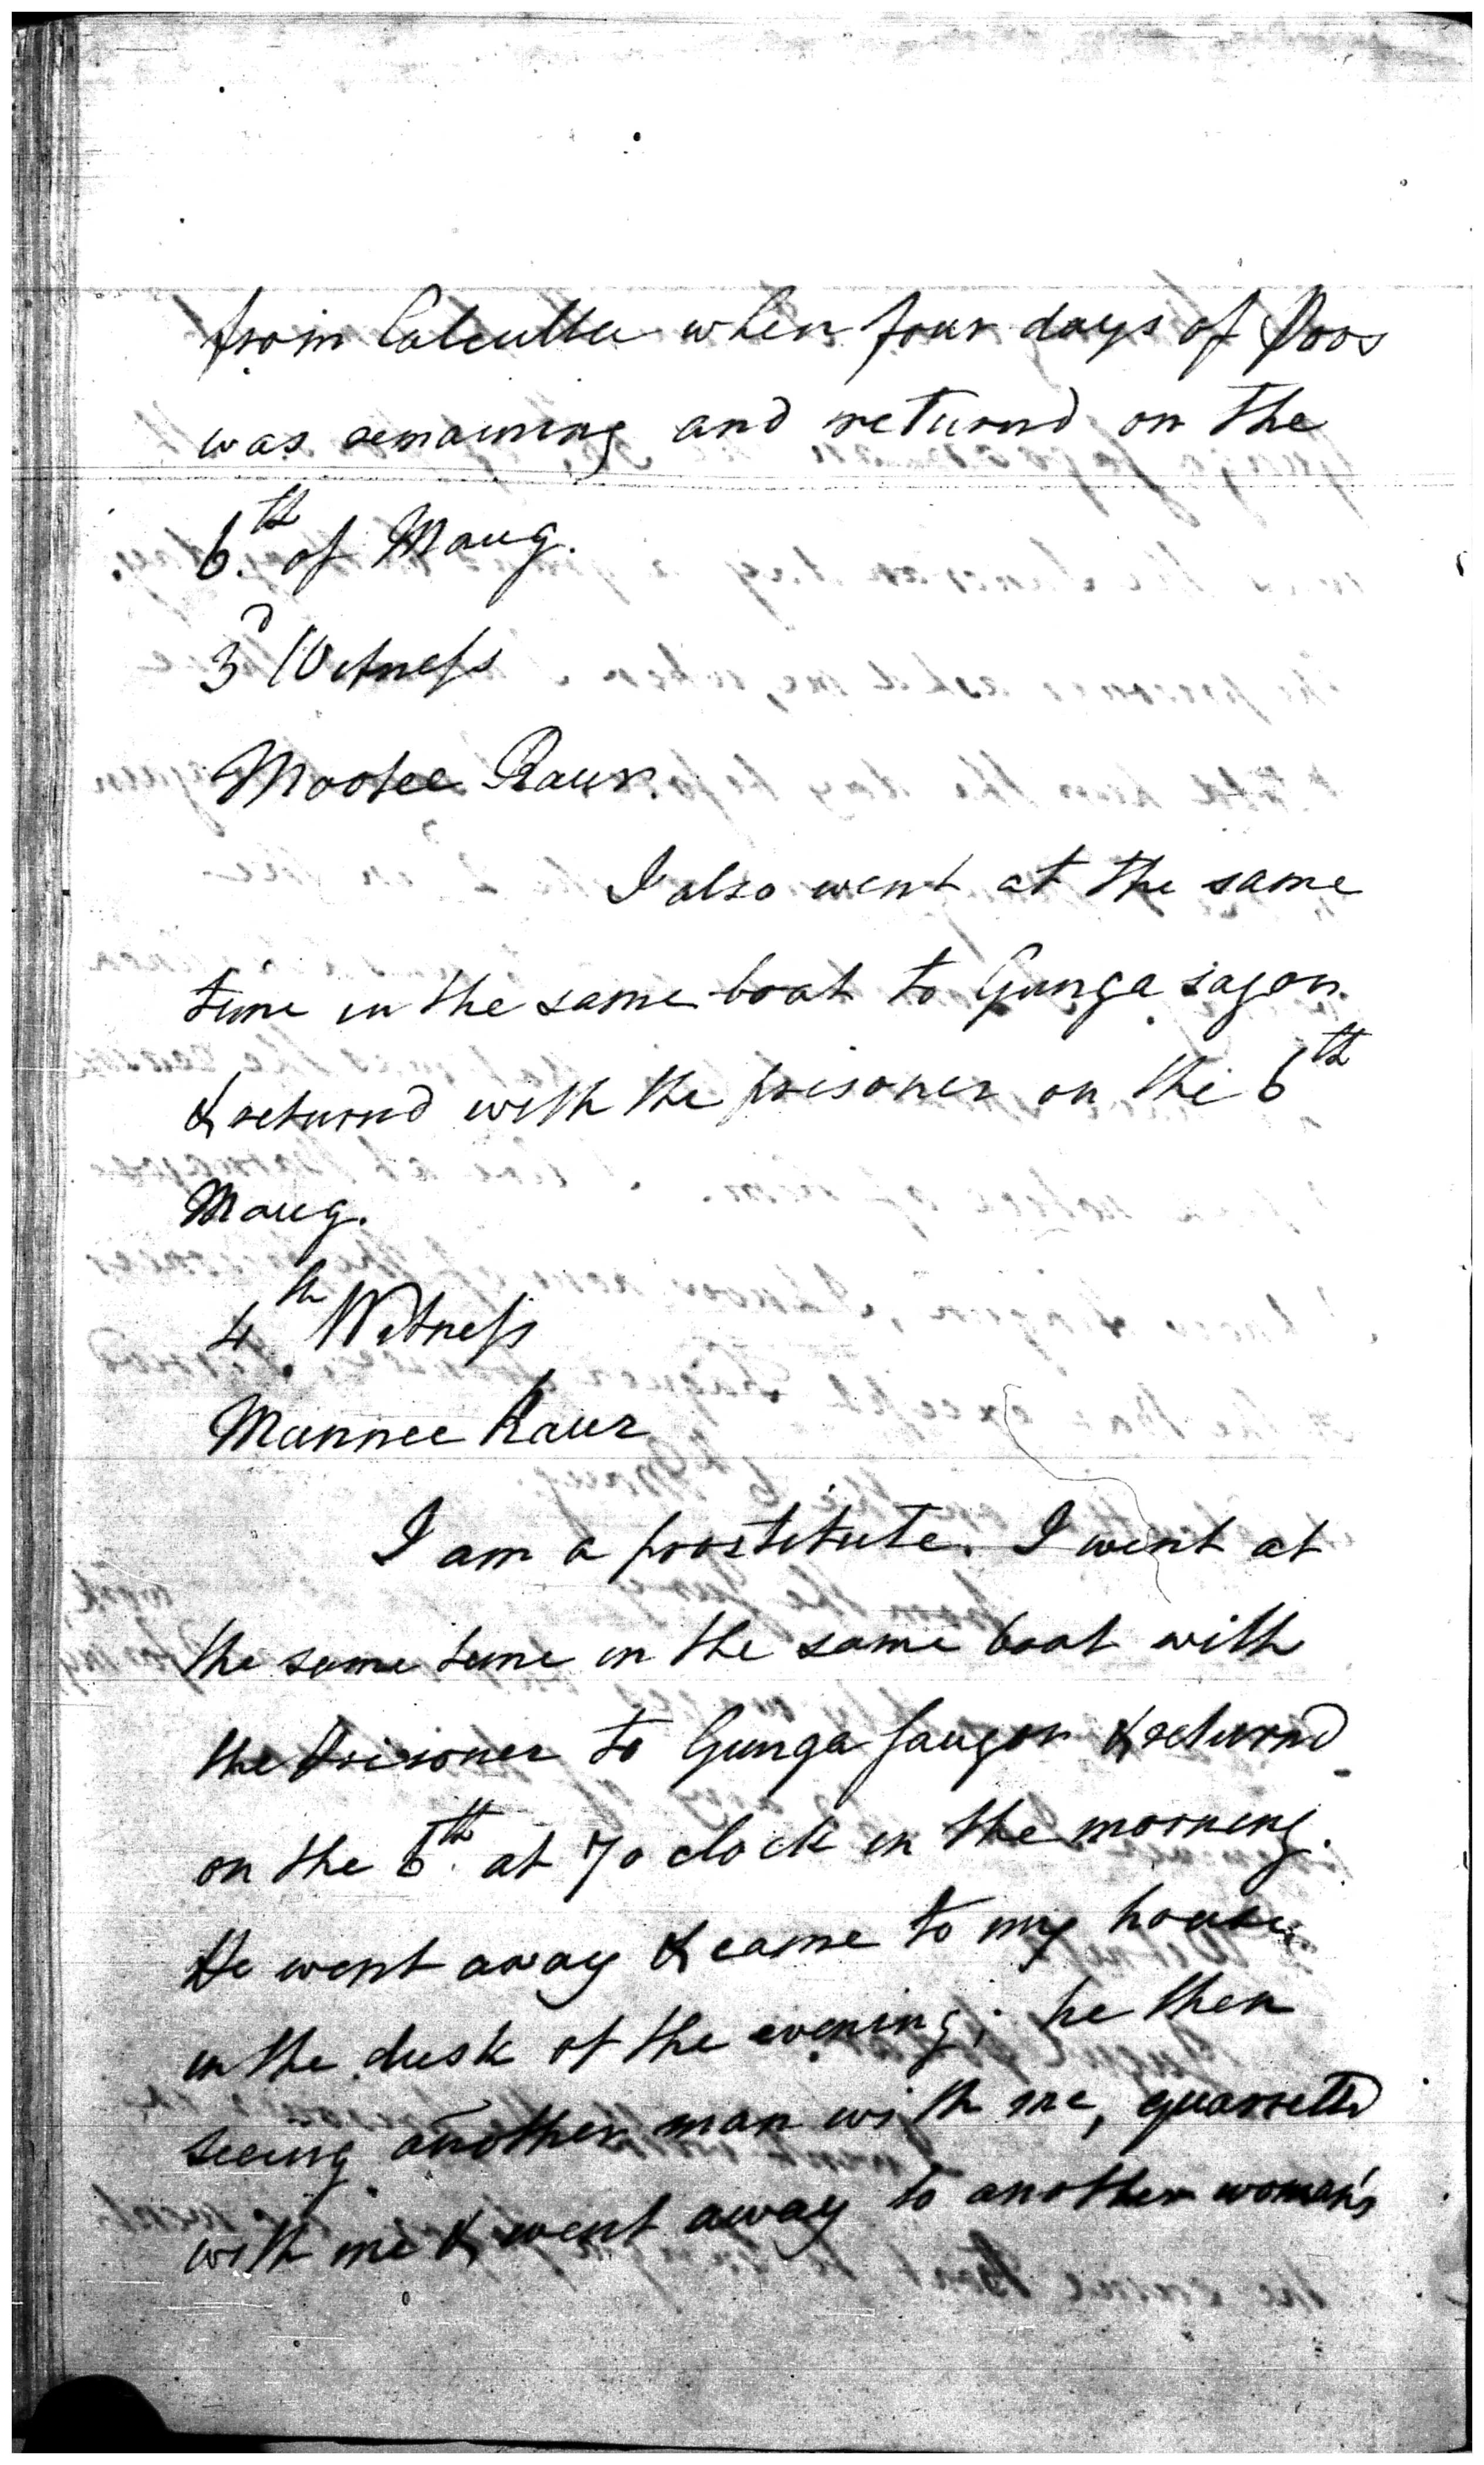 from Calcutta when four days of Poos
was remaining and returnd on the
6th of Maug.
3d Witness
Mootee Raur.
I also went at the same
time in the same boat to Gunga sagor
& returnd with the prisoner on the 6th
Maug.
4th Witness
Munnee Raur
I am a prostitute. I went at
the same time in the same boat with
the prisoner to Gunga saugor & returnd
on the 6th at 7 o clock in the morning.
He went away & came to my house
in the dusk of the evening; he then
seeing another man with me, quarrelld
with me & went away to another woman's